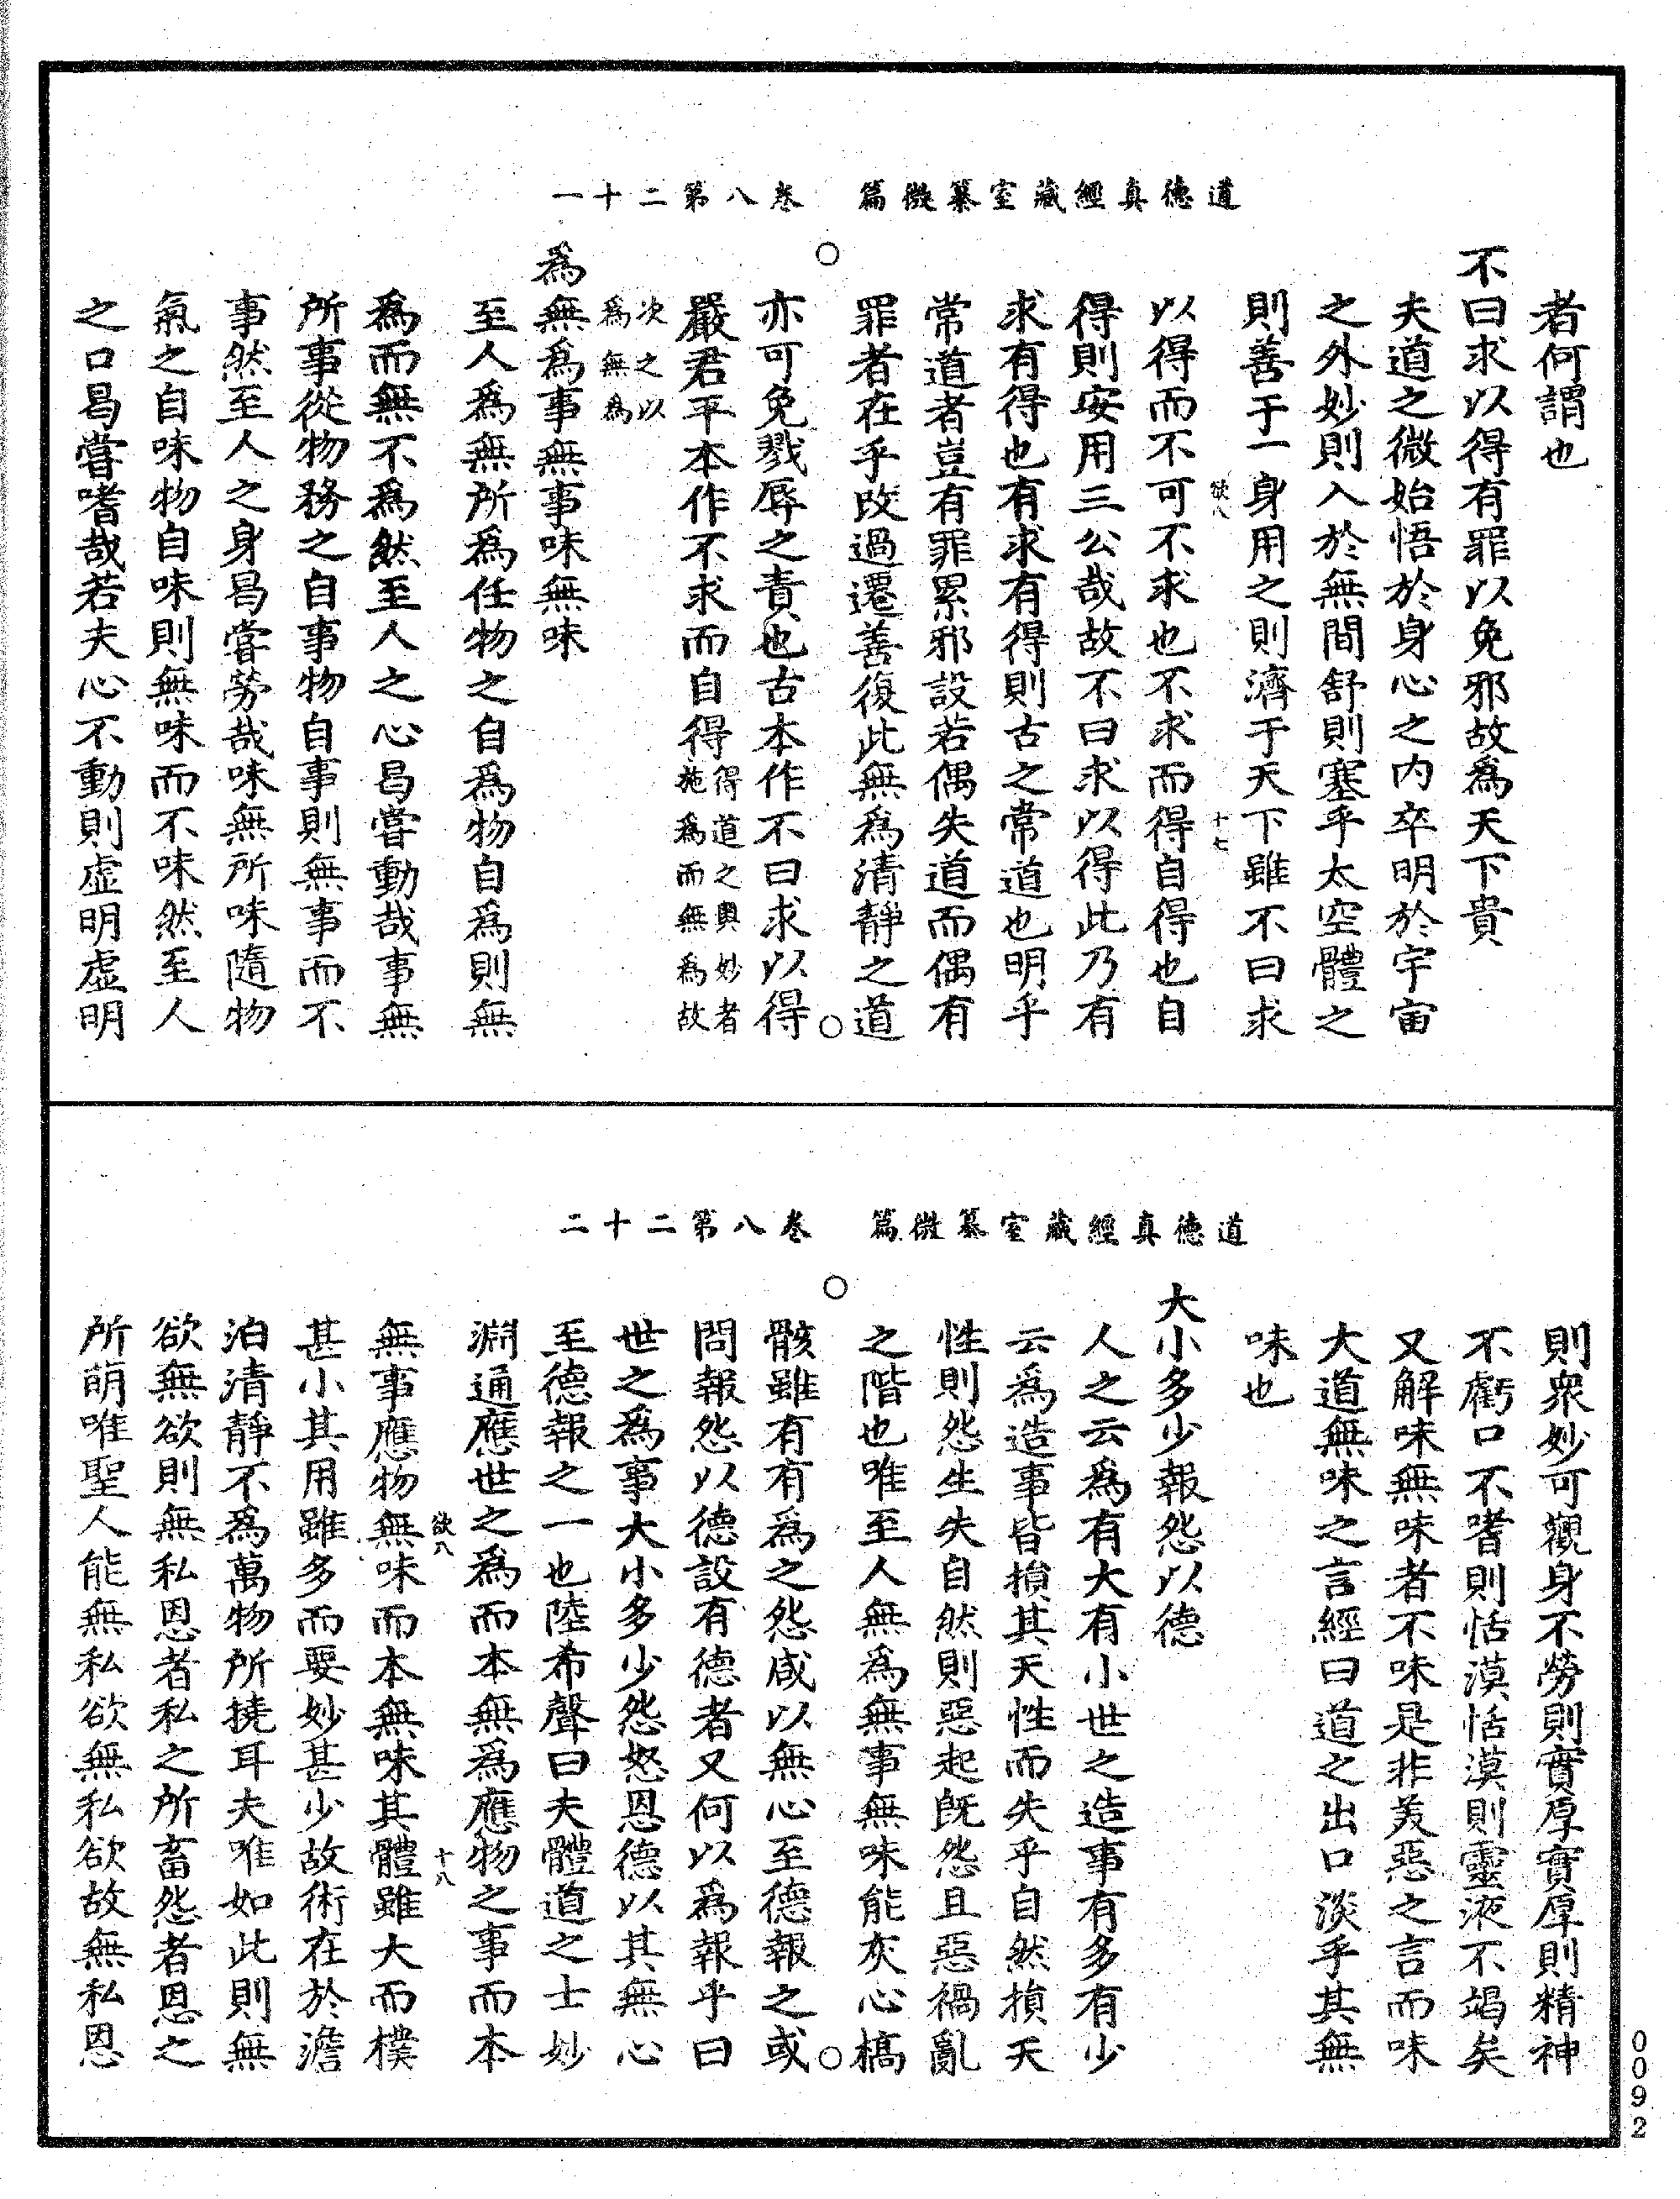 道德真經藏室纂微篇　卷八第二十一
者何謂也
不曰求以得有罪以免邪故為天下貴
夫道之微始悟於身心之内卒明於宇宙
之外妙則入於無間舒則塞乎太空體之
則善于一身用之則濟于天下雖不曰求
欲八　十七
以得而不可不求也不求而得自得也自
得則安用三公哉故不曰求以得此乃有
求有得也有求有得則古之常道也明乎
常道者豈有罪累邪設若偶失道而偶有
罪者在乎改過遷善復此無為清靜之道
亦可免戮辱之責也古本作不曰求以得
嚴君平本作不求而自得得道之輿妙者施為而無為故
次之以為無為
為無為事無事味無味
至人為無所為任物之自為物自為則無
為而無不為然至人之心曷嘗動哉事無
所事從物務之自事物自事則無事而不
事然至人之身曷嘗勞哉味無所味隨物
氣之自味物自味則無味而不味然至人
之口曷嘗嗜哉若夫心不動則虛明虛明
道德真經藏室纂微篇　卷八第二十二
則衆妙可觀身不勞則實厚實厚則精神
不虧口不嗜則恬漠恬漠則靈液不竭矣
又解味無味者不味是非美惡之言而味
大道無味之言經曰道之出口淡乎其無
味也
大小多少報怨以德
人之云為有大有小世之造事有多有少
云為造事皆損其天性而失乎自然損天
性則怨生失自然則惡起既怨且惡禍亂
之階也唯至人無為無事無味能灰心槁
骸雖有有為之怨咸以無心至德報之或
問報怨以德設有德者又何以為報乎曰
世之為事大小多少怨怒恩德以其無心
至德報之一也陸希聲曰夫體道之士妙
淵通應世之為而本無為應物之事而本
欲八　十八
無事應物無味而本無味其體雖大而樸
甚小其用雖多而要妙甚少故術在於澹
泊清靜不為萬物所撓耳夫唯如此則無
欲無欲則無私恩者私之所畜怨者恩之
所萌唯聖人能無私欲無私欲故無私恩
0092